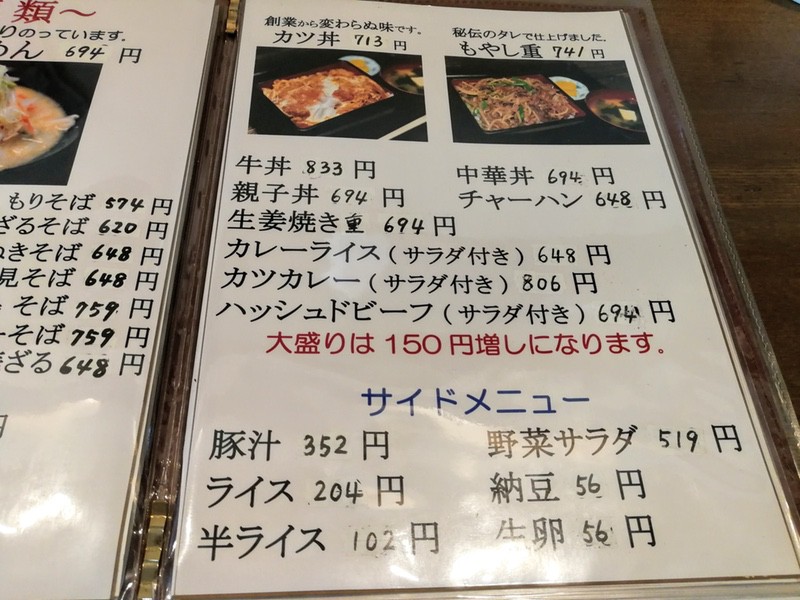 類～
りのっています。
694 円
もりそば 574 円
ざるそば 620 円
きそば 648 円
見そば 648 円
そば 759 円
そば 759 円
ざる 648 円
円
創業から変わらぬ味です。
カツ丼 713 円
秘伝のタレで仕上げました。
もやし重 741 円
牛丼 833 円
中華丼 694 円
親子丼 694 円
チャーハン 648 円
生姜焼き重 694 円
カレーライス(サラダ付き) 648 円
カツカレー(サラダ付き) 806 円
ハッシュドビーフ(サラダ付き) 694 円
大盛りは150円増しになります。
サイドメニュー
豚汁 352 円
野菜サラダ 519 円
ライス 204 円
納豆 56 円
半ライス 102 円
生卵 56 円